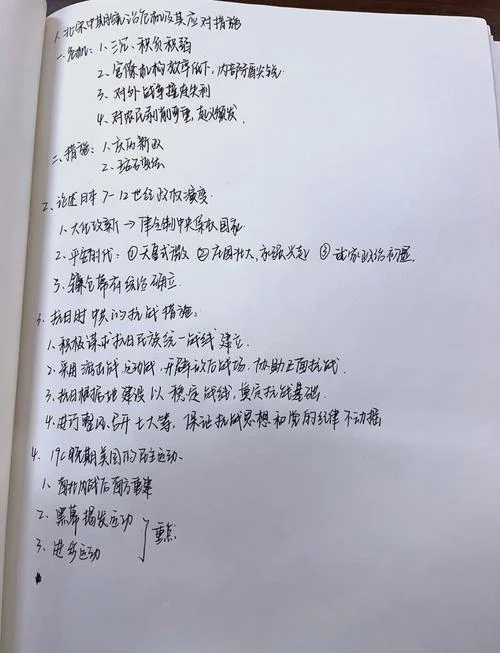 1. 北宋中期统治危机及其应对措施
一. 危机: 1. 三冗、积贫积弱
2. 官僚机构效率低下, 内部方面尖锐
3. 对外战争接连失利
4. 对农民剥削严重, 起义频发.
二. 措施: 1. 庆历新政
2. 王安石变法
2. 论述日本 7-12世纪政权演变.
1. 大化改新 → 律令制中央集权国家
2. 平安时代: ① 天皇式微 ② 庄园壮大, 豪强兴起 ③ 武家政治初显.
3. 镰仓幕府统治确立
3. 抗日时中共的抗战措施:
1. 积极谋求抗日民族统一战线建立.
2. 采用游击战、运动战, 开辟敌后战场, 协助正面抗战.
3. 抗日根据地建设以稳定战线, 奠定抗战基础.
4. 进行整风、召开七大等, 保证抗战思想和党的纪律不动摇
4. 19c晚期美国的民主运动.
1. 南北内战后南方重建
2. 黑幕揭发运动
3. 进步运动 重点